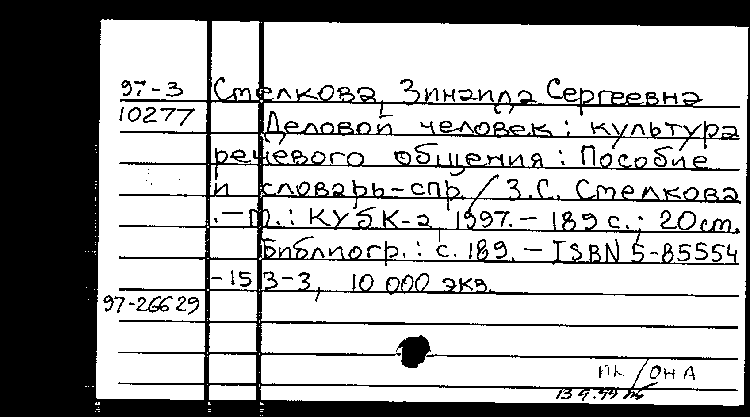 97-3 Стелкова, Зинаида Сергеевна
10277 Деловой человек: культура
речевого общения: Пособие
и словарь-спр. / З.С. Стелкова
.—М.: КУбК-а, 1997.— 189 с.; 20 см.
Библиогр.: с. 189. — ISBN 5-85554
-153-3, 10 000 экз.
97-26629
ПК / ОНА